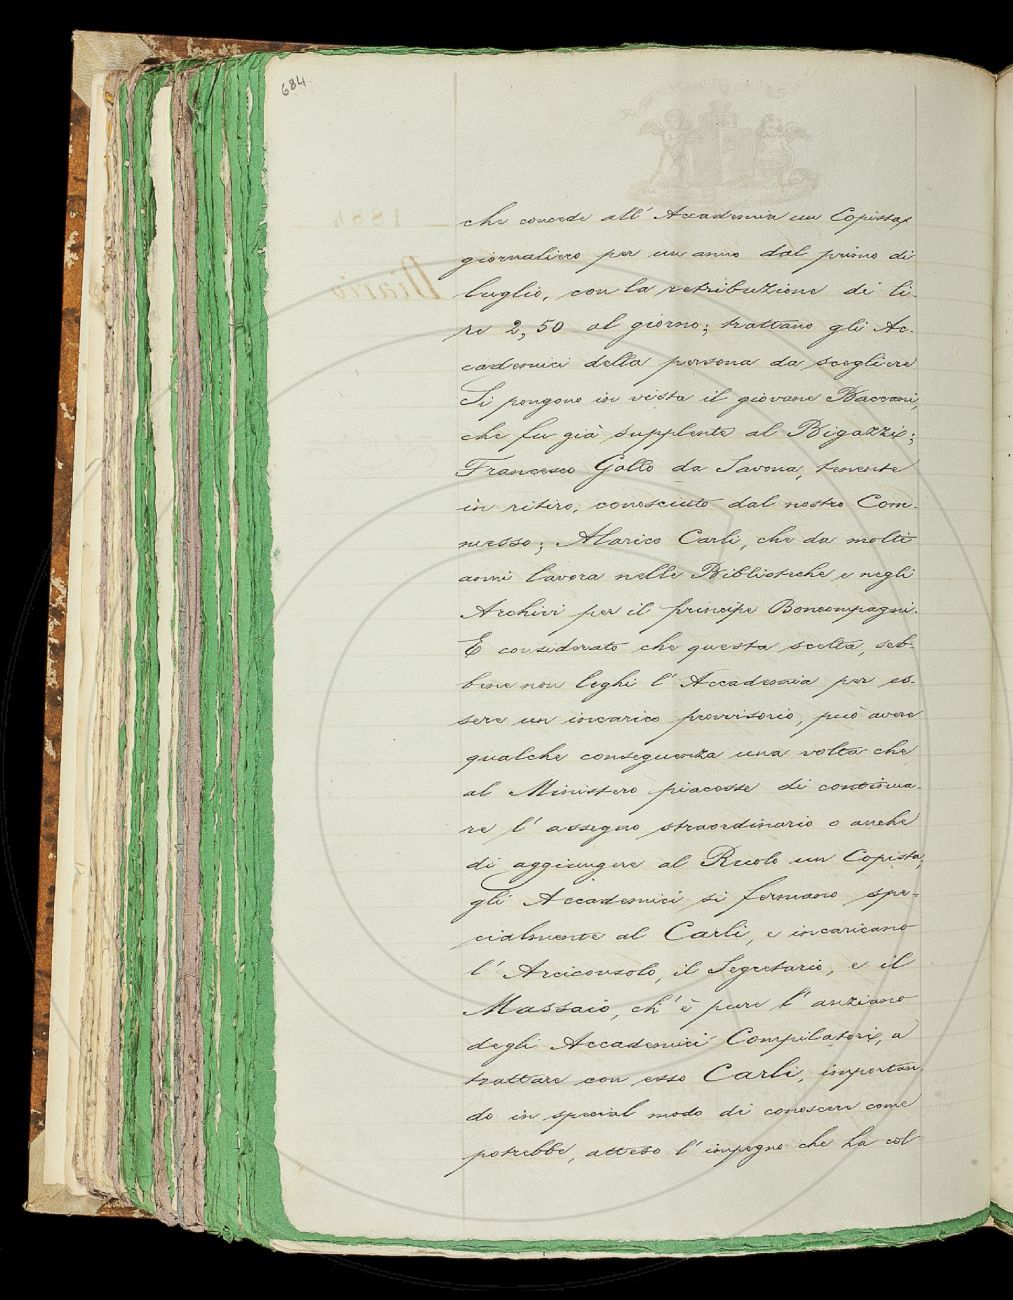 684
che concede all' Accademia un Copista
giornaliero per un anno dal primo di
luglio, con la retribuzione di li-
re 2,50 al giorno; trattano gli Ac-
cademici della persona da scegliere
Si pongono in vista il giovane Baccani,
che fu già supplente al Bigazzi;
Francesco Gallo da Savona, tenente
in ritiro, conosciuto dal nostro Com-
messo; Alarico Carli, che da molti
anni lavora nelle Biblioteche e negli
Archivi per il principe Boncompagni.
E considerato che questa scelta, seb-
bene non leghi l' Accademia per es-
sere un incarico provvisorio, può avere
qualche conseguenza una volta che
al Ministero piacesse di continua-
re l' assegno straordinario o anche
di aggiungere al Ruolo un Copista,
gli Accademici si fermano spe-
cialmente al Carli, e incaricano
l' Arciconsolo, il Segretario, e il
Massaio, ch' è pure l' anziano
degli Accademici Compilatori, a
trattare con esso Carli, importan-
do in special modo di conoscere come
potrebbe, atteso l' impegno che ha col
1884
Diario